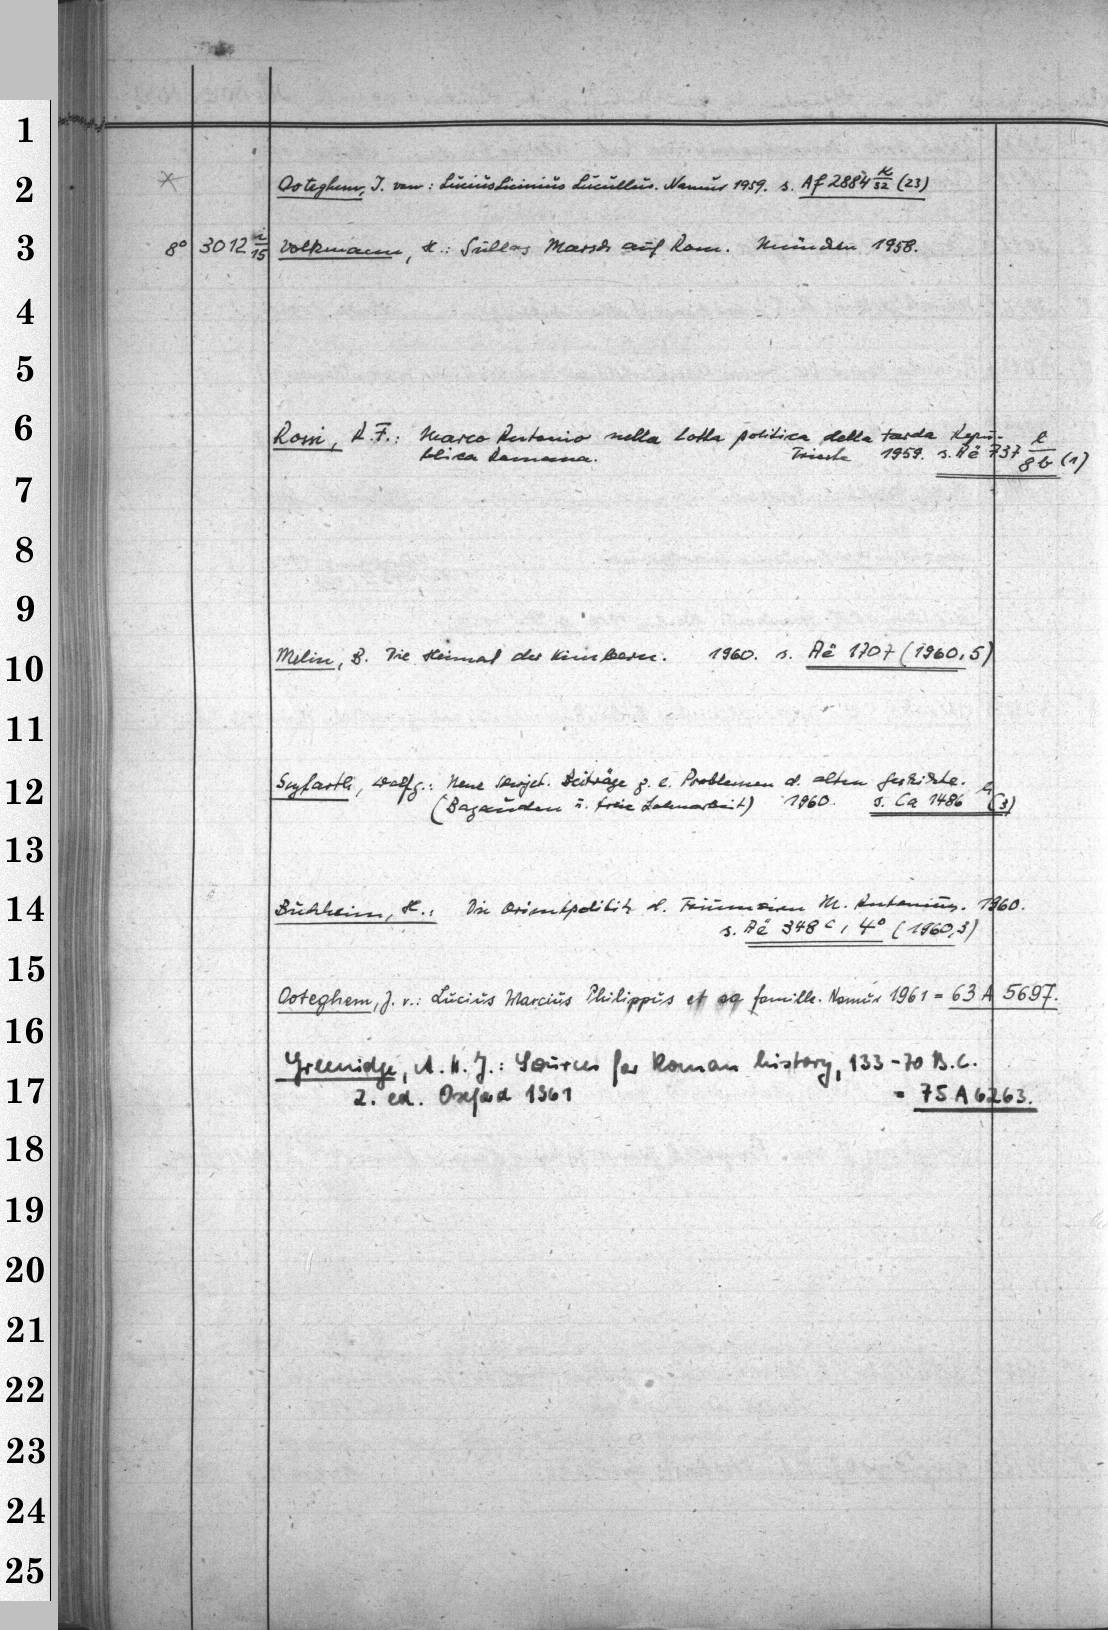 1
2
3
4
5
6
7
8
9
10
11
12
13
14
15
16
17
18
19
20
21
22
23
24
25
Ooteghem, J. van: Lucius Licinius Lucullus. Namur 1959. s. Af 2884 K/32 (23)
8° 3012 i/15 Volkmann, H.: Sullas Marsch auf Rom. München 1958.
Rossi, R. F.: Marco Antonio nella lotta politica della tarda Repu-
blica Romana. Trieste 1959. s. Aë 737 k/8b (1)
Melin, B. Die Heimat der Kimbern. 1960. s. Aë 1707 (1960,5)
Seyfarth, Wolfg.: Neue sowjet. Beiträge z. e. Problemen d. alten Geschichte.
(Bagauden u. freie Lohnarbeit) 1960. s. Ca 1486 (3)
Buchheim, H.: Die Orientpolitik d. Triumvirn M. Antonius. 1960.
s. Aë 348 c, 4° (1960,3)
Ooteghem, J. v.: Lucius Marcius Philippus et sa famille. Namur 1961 = 63 A 5697.
Greenidge, A. H. J.: Sources for Roman history, 133-70 B.C.
2. ed. Oxford 1961 = 75 A 6263.